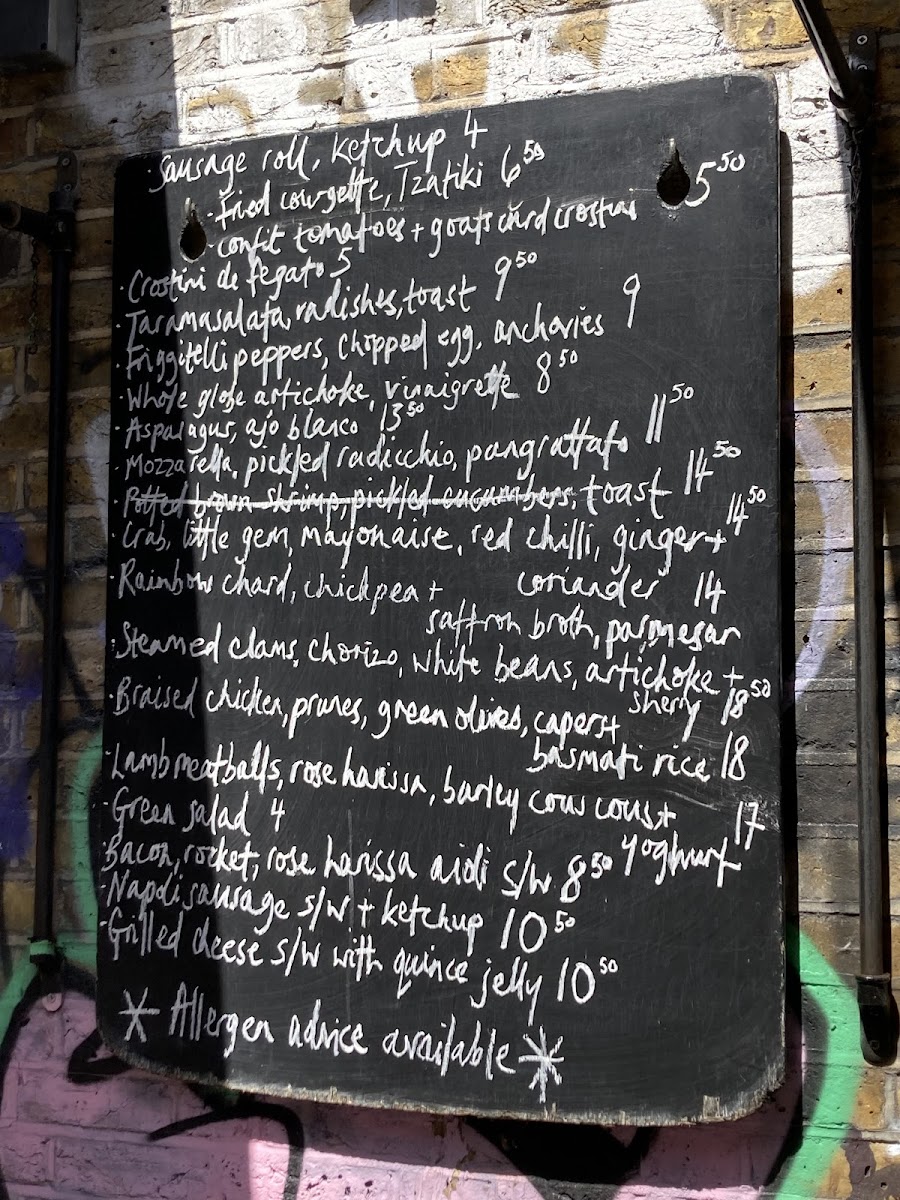 · Sausage roll, ketchup 4
· fried courgette, Tzatiki 6 50
· confit tomatoes + goats curd crostini 5 50
· Crostini de fegato 5
· Taramasalata, radishes, toast 9 50
· Friggitelli peppers, chopped egg, anchovies 9
· Whole globe artichoke, vinaigrette 8 50
· Asparagus, ajo blanco 13 50
· Mozzarella, pickled radicchio, pangrattato 11 50
· Potted brown shrimp, pickled cucumbers, toast 14 50
· Crab, little gem, mayonaise, red chilli, ginger + 14 50
coriander
· Rainbow chard, chickpea + 14
saffron broth, parmesan
· Steamed clams, chorizo, white beans, artichoke +
sherry 18 50
· Braised chicken, prunes, green olives, capers +
basmati rice 18
· Lamb meatballs, rose harissa, barley cous cous + 17
yoghurt
· Green salad 4
· Bacon, rocket, rose harissa aioli s/w 8 50
· Napoli sausage s/w + ketchup 10 50
· Grilled cheese s/w with quince jelly 10 50
* Allergen advice available *